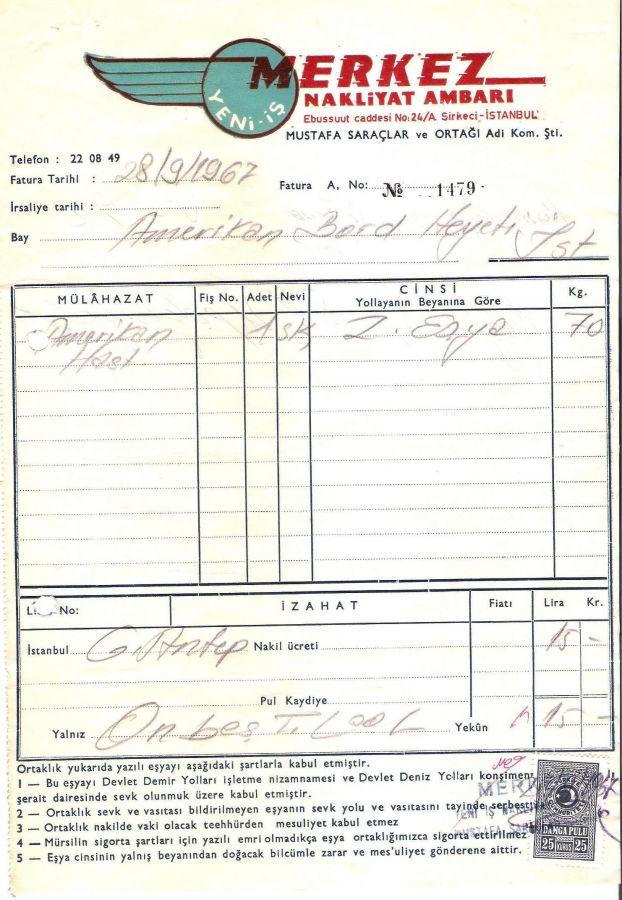 MERKEZ
YENİ-İŞ
NAKLİYAT AMBARI
Ebussuut caddesi No:24/A Sirkeci-İSTANBUL
MUSTAFA SARAÇLAR ve ORTAĞI Adi Kom. Şti.
Telefon : 22 08 49
Fatura Tarihi : 28/9/1967
Fatura A, No: № 1479
İrsaliye tarihi :
Bay Amerikan Bord Heyeti İst
MÜLÂHAZAT Fiş No. Adet Nevi CİNSİ Kg.
Yollayanın Beyanına Göre
Amerikan 1 Sk Z. Eşya 70
Hast
No: İZAHAT Fiatı Lira Kr.
İstanbul G. Antep Nakil ücreti 15 -
Pul Kaydiye
Yalnız On beş T. L Yekûn 15 -
Ortaklık yukarıda yazılı eşyayı aşağıdaki şartlarla kabul etmiştir.
1 — Bu eşyayı Devlet Demir Yolları işletme nizamnamesi ve Devlet Deniz Yolları konşiment
şerait dairesinde sevk olunmak üzere kabul etmiştir.
2 — Ortaklık sevk ve vasıtası bildirilmeyen eşyanın sevk yolu ve vasıtasını tayinde serbesttir
3 — Ortaklık nakilde vaki olacak teehhürden mesuliyet kabul etmez
4 — Mürsilin sigorta şartları için yazılı emri olmadıkça eşya ortaklığımızca sigorta ettirilmez
5 — Eşya cinsinin yalnış beyanından doğacak bilcümle zarar ve mes'uliyet gönderene aittir.
MERK
YENİ İŞ
MUSTAFA
DAMGA PULU
25 KURUŞ 25